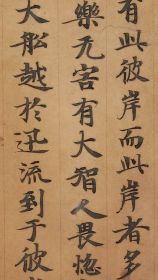 有此彼岸而此岸者多
樂无害有大智人畏惚
大船越於迅流到于彼